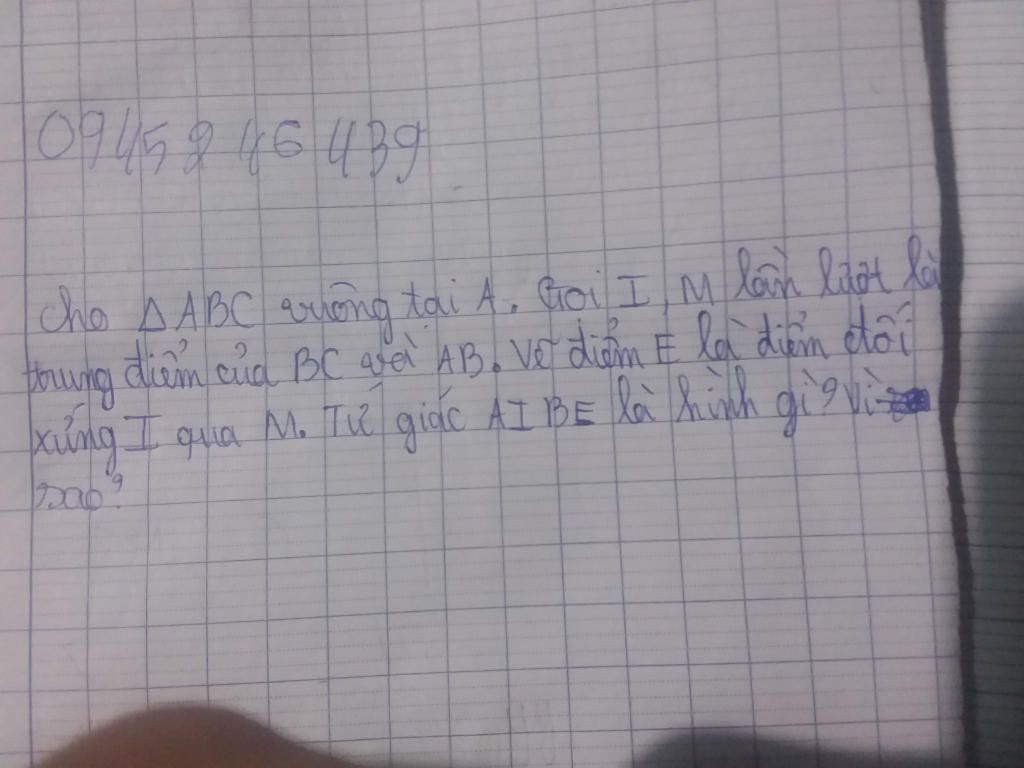 0945246439
Cho △ABC vuông tại A. Gọi I, M lần lượt là
trung điểm của BC và AB. Vẽ điểm E là điểm đối
xứng I qua M. Tứ giác AIBE là hình gì? Vì
sao?